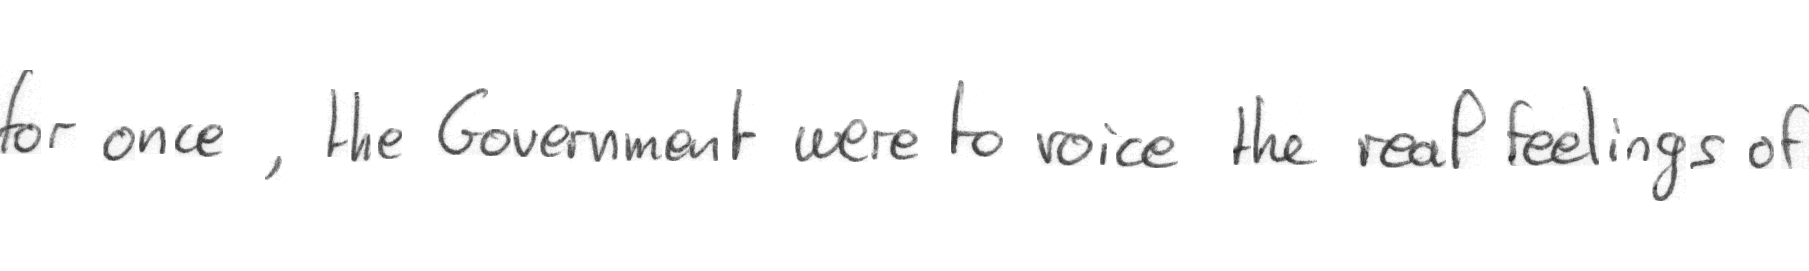 for once , the Government were to voice the real feelings of